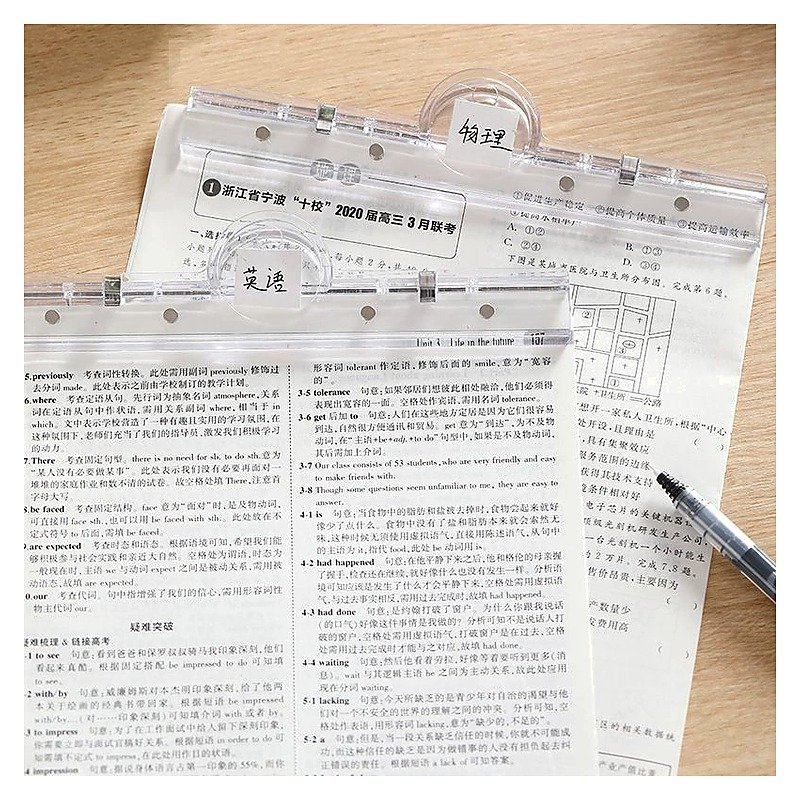 物理
地理
1 浙江省宁波“十校”2020届高三3月联考
①促进生产稳定 ②提高个体质量 ③提高运输效率
A. ①②
B. ①③
C. ②④
D. ③④
下图是某城市医院与卫生所分布图。完成第6题。
英语
Unit 3 Life in the future 157
5.previously 考查词性转换。此处需用副词 previously 修饰过
去分词 made。此处表示之前由学校制订的教学计划。
6.where 考查定语从句。先行词为抽象名词 atmosphere,关系
词在定语从句中作状语,需用关系副词 where,相当于 in
which。文中表示学校营造了一种有趣且实用的学习氛围,在
这种氛围下,老师们充当了我们的指导员,激发我们积极学习
的动力。
7.There 考查固定句型。there is no need for sb. to do sth.意为
“某人没有必要做某事”。此处表示我们没有必要再面对一
堆堆的家庭作业和数不清的试卷。故空格处填 There,注意首
字母大写。
8.be faced 考查固定结构。face 意为“面对”时,是及物动词,
可直接用 face sth.,也可以用 be faced with sth.。此处放在不
定式符号 to 后面,需填 be faced。
9.are expected 考查时态和语态。根据语境可知,希望我们能
够积极参与社会实践和亲近大自然。空格处为谓语,时态为
一般现在时,主语 we 与动词 expect 之间是被动关系,需用被
动语态,故填 are expected。
0.our 考查代词。句中指增强了我们的信心,需用形容词性
物主代词 our。
疑难突破
疑难梳理 & 链接高考
-1 to see 句意:看到爸爸和保罗叔叔骑马我印象深刻,他们
看起来真酷。根据固定搭配 be impressed to do 可知填
to see。
-2 with/by 句意:威廉姆斯对本杰明印象深刻,给了他两
本关于绘画的经典书带回家。根据短语 be impressed
with/by...(对……印象深刻)可知填介词 with 或者 by。
-3 to impress 句意:为了在工作面试中给人留下深刻印象,
你需要立即与面试官搞好关系。根据短语 in order to do 可
知需填不定式 to impress,在此处用作目的状语。
-4 impression 句意:据说身体语言占第一印象的 55%,而你
形容词 tolerant 作定语,修饰后面的 smile,意为“宽容
的”。
3-5 tolerance 句意:如果邻居们想彼此相处融洽,他们必须得
表现出宽容的一面。空格处作宾语,需用名词 tolerance。
3-6 get 后加 to 句意:人们在这些地方定居是因为它们很容易
到达,自然很方便通讯和贸易。get 意为“到达”,为不及物
动词,在“主语+be+adj.+to do”句型中,如果是不及物动词,
其后需加上介词。
3-7 Our class consists of 53 students,who are very friendly and easy
to make friends with.
3-8 Though some questions seem unfamiliar to me, they are easy to
answer.
4-1 is 句意:当食物中的脂肪和盐被去掉时,食物尝起来就好
像少了点什么。食物中没有了盐和脂肪本来就会索然无
味,这种时候无须使用虚拟语气,直接用陈述语气,从句中
的主语为 it,指代 food,此处 be 动词用 is。
4-2 had happened 句意:在他平静下来之后,他和格伦的母亲握
了握手,检查还在继续,就好像什么也没有发生一样。分析语
境可知应该是发生了什么才会平静下来,空格处需用虚拟语
气,与过去事实相反,需用过去完成时,故填 had happened。
4-3 had done 句意:是约翰打破了窗户。为什么你跟我说话
(的口气)好像这件事情是我做的?分析可知不是说话人打
破的窗户,空格处需用虚拟语气,打破窗户是在过去,空格
处需用过去完成时才能与之对应,故填 had done。
4-4 waiting 句意:然后他看着劳拉,好像等着要听到更多(消
息)。wait 与其逻辑主语 he 之间为主动关系,故此处应用
现在分词 waiting。
5-1 lacking 句意:今天所缺乏的是青少年对自治的渴望与他
们对一个不安全的世界的理解之间的冲突。分析可知,空
格处作表语,用形容词 lacking,意为“缺少的,不足的”。
5-2 a 句意:但是,当一段关系缺乏信任的时候,你就不可能成
功,而这种信任的缺乏是因为做错事的人没有担负起去纠
正错误的责任。根据短语 a lack of 可知答案。